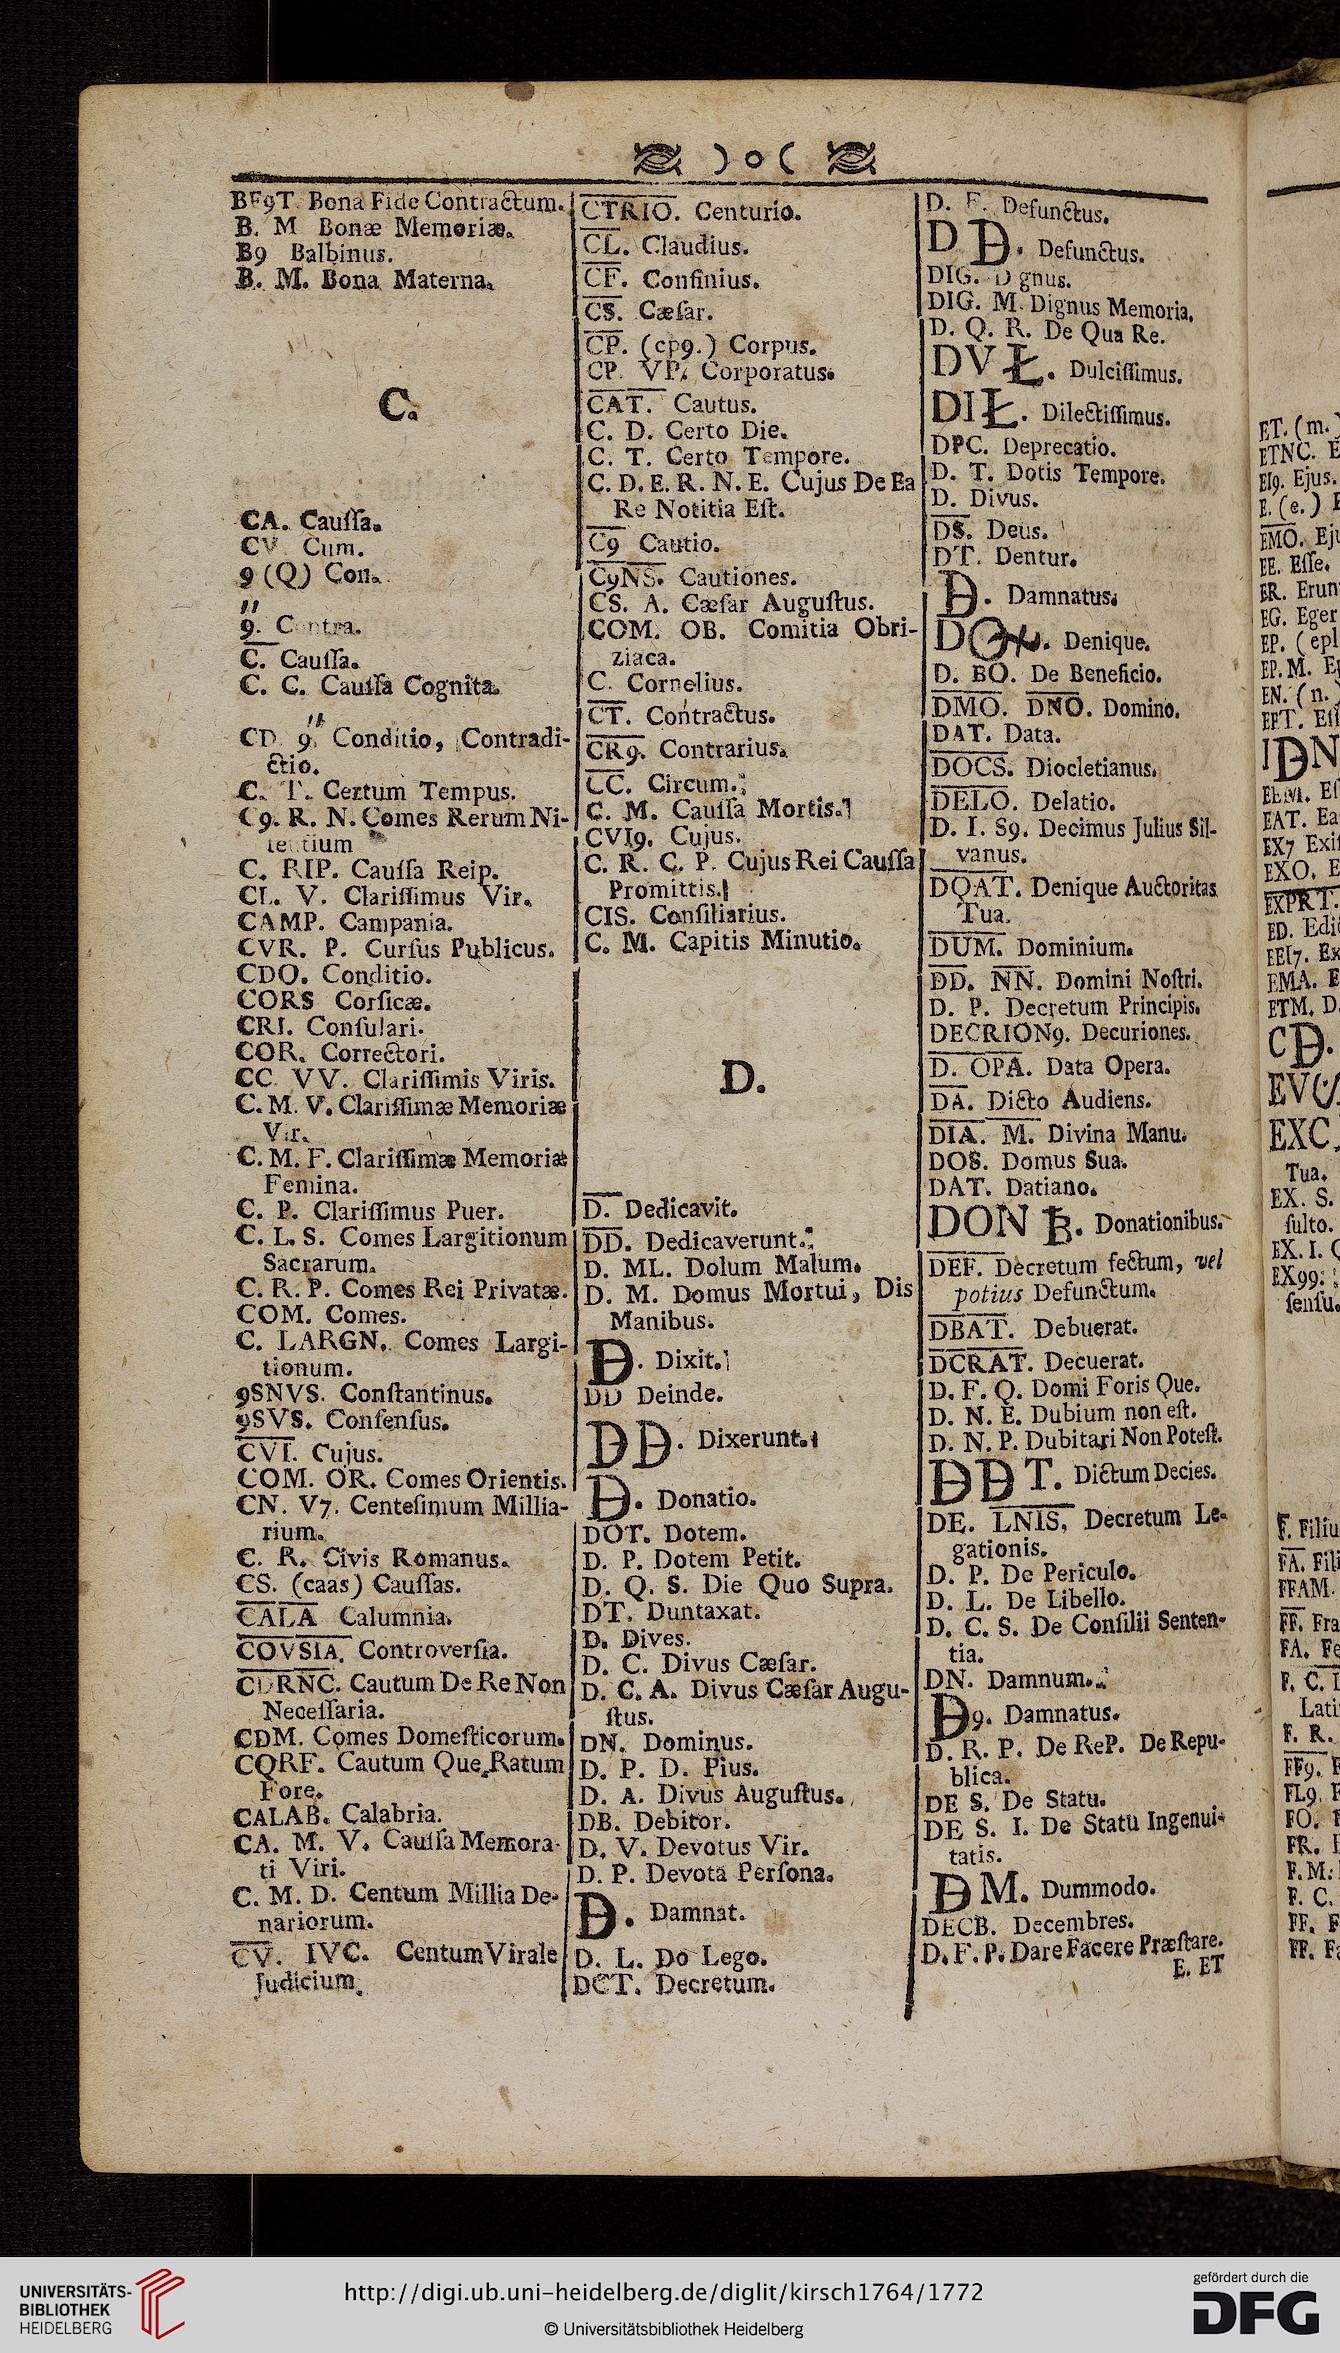 BF9T. Bona Fide Contractum.
B. M Bonæ Memoriæ.
B9 Balbinus.
B. M. Bona Materna.
C.
CA. Cauſſa.
CV Cum.
9 (Q) Con.
9. Contra.
C. Cauſſa.
C. C. Cauſſa Cognita.
CD 9. Conditio, Contradi-
ctio.
C. T. Certum Tempus.
C9. R. N. Comes Rerum Ni-
tentium
C. RIP. Cauſſa Reip.
CL. V. Clariſſimus Vir.
CAMP. Campania.
CVR. P. Curſus Publicus.
CDO. Conditio.
CORS Corſicæ.
CRI. Conſulari.
COR. Correctori.
CC VV. Clariſſimis Viris.
C. M. V. Clariſſimæ Memoriæ
Vir.
C. M. F. Clariſſimæ Memoriæ
Femina.
C. P. Clariſſimus Puer.
C. L. S. Comes Largitionum
Sacrarum.
C. R. P. Comes Rei Privatæ.
COM. Comes.
C. LARGN. Comes Largi-
tionum.
9SNVS. Conſtantinus.
9SVS. Conſenſus.
CVI. Cujus.
COM. OR. Comes Orientis.
CN. V7. Centeſimum Millia-
rium.
C. R. Civis Romanus.
CS. (caas) Cauſſas.
CALA Calumnia.
COVSIA. Controverſia.
CDRNC. Cautum De Re Non
Neceſſaria.
CDM. Comes Domeſticorum.
CQRF. Cautum Que Ratum
Fore.
CALAB. Calabria.
CA. M. V. Cauſſa Memora-
ti Viri.
C. M. D. Centum Millia De-
nariorum.
CV. IVC. Centum Virale
Judicium.
CTRIO. Centurio.
CL. Claudius.
CF. Confinius.
CS. Cæſar.
CP. (cp9.) Corpus.
CP. VP. Corporatus.
CAT. Cautus.
C. D. Certo Die.
C. T. Certo Tempore.
C. D. E. R. N. E. Cujus De Ea
Re Notitia Eſt.
C9 Cautio.
C9NS. Cautiones.
CS. A. Cæſar Auguſtus.
COM. OB. Comitia Obri-
ziaca.
C. Cornelius.
CT. Contractus.
CR9. Contrarius.
CC. Circum.
C. M. Cauſſa Mortis.
CVI9. Cujus.
C. R. C. P. Cujus Rei Cauſſa
Promittis.
CIS. Conſiliarius.
C. M. Capitis Minutio.
D.
D. Dedicavit.
DD. Dedicaverunt.
D. ML. Dolum Malum.
D. M. Domus Mortui, Dis
Manibus.
D. Dixit.
DD Deinde.
DD. Dixerunt.
D. Donatio.
DOT. Dotem.
D. P. Dotem Petit.
D. Q. S. Die Quo Supra.
DT. Duntaxat.
D. Dives.
D. C. Divus Cæſar.
D. C. A. Divus Cæſar Augu-
ſtus.
DN. Dominus.
D. P. D. Pius.
D. A. Divus Auguſtus.
DB. Debitor.
D. V. Devotus Vir.
D. P. Devota Perſona.
D. Damnat.
D. L. Do Lego.
DCT. Decretum.
D. F. Defunctus.
D D. Defunctus.
DIG. D gnus.
DIG. M. Dignus Memoria.
D. Q. R. De Qua Re.
DVŁ. Dulciſſimus.
DIŁ. Dilectiſſimus.
DPC. Deprecatio.
D. T. Dotis Tempore.
D. Divus.
DS. Deus.
DT. Dentur.
D. Damnatus.
Denique.
D. BO. De Beneficio.
DMO. DNO. Domino.
DAT. Data.
DOCS. Diocletianus.
DELO. Delatio.
D. I. S9. Decimus Julius Sil-
vanus.
DQAT. Denique Auctoritas
Tua.
DUM. Dominium.
DD. NN. Domini Noſtri.
D. P. Decretum Principis.
DECRION9. Decuriones.
D. OPA. Data Opera.
DA. Dicto Audiens.
DIA. M. Divina Manu.
DOS. Domus Sua.
DAT. Datiano.
DON B. Donationibus.
DEF. Decretum fectum, vel
potius Defunctum.
DBAT. Debuerat.
DCRAT. Decuerat.
D. F. Q. Domi Foris Que.
D. N. E. Dubium non eſt.
D. N. P. Dubitari Non Poteſt.
DDT. Dictum Decies.
DE. LNIS, Decretum Le-
gationis.
D. P. De Periculo.
D. L. De Libello.
D. C. S. De Conſilii Senten-
tia.
DN. Damnum.
D9. Damnatus.
D. R. P. De ReP. De Repu-
blica.
DE S. De Statu.
DE S. I. De Statu Ingenui-
tatis.
DM. Dummodo.
DECB. Decembres.
D. F. P. Dare Facere Præſtare.
E. ET
ET. (m.
ETNC. E
EI9. Ejus.
E. (e.) E
EMO. Ej
EE. Eſſe.
ER. Erun
EG. Eger
EP. (epl
EP. M. E
EN. (n.
EAT. Ea
EX7 Exi
EXO. E
EXPRT.
ED. Edi
EEI7. Ex
EMA. E
ETM. D
EXC
Tua.
EX. S.
ſulto.
EX. I. C
EX99:
ſenſu.
F. Filiu
FA. Fili
FFAM.
FF. Fra
FA. Fe
F. C. L
Lati
F. R.
FF9. F
FL9. F
FO. F
FR.
F. M.
F. C.
FF. F
FF. Fa
UNIVERSITÄTS-
BIBLIOTHEK
HEIDELBERG
http://digi.ub.uni-heidelberg.de/diglit/kirsch1764/1772
© Universitätsbibliothek Heidelberg
gefördert durch die
DFG